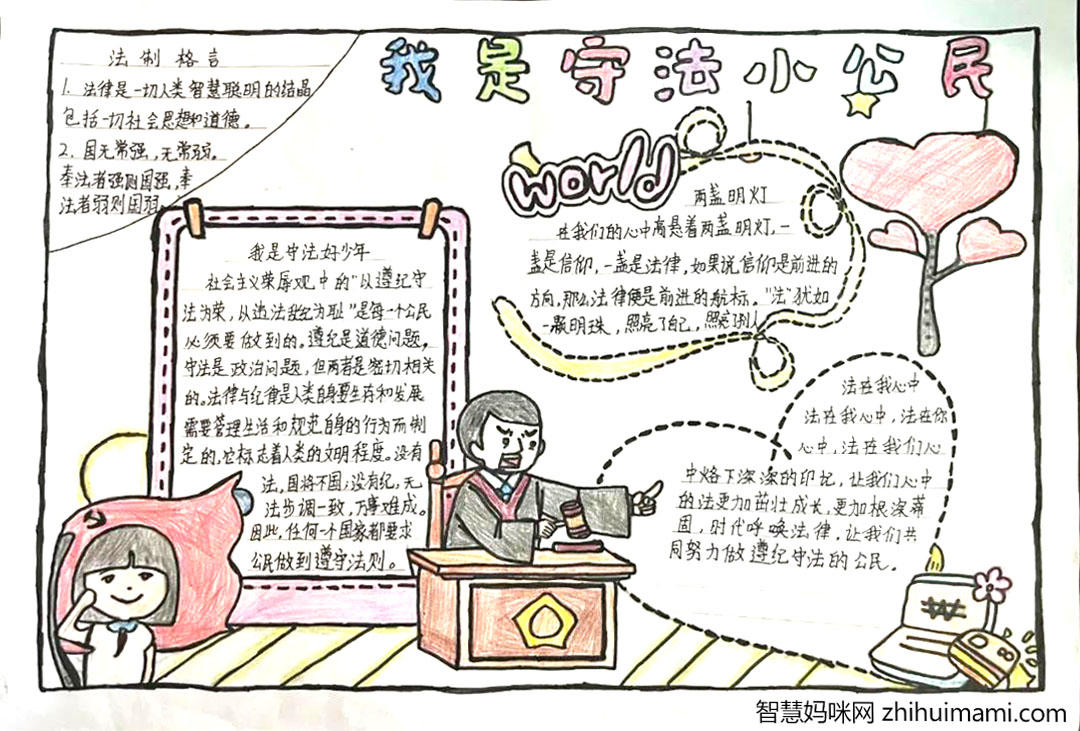 我是守法小公民
法制格言
1.法律是一切人类智慧聪明的结晶
包括一切社会思想和道德。
2.国无常强,无常弱。
奉法者强则国强,奉
法者弱则国弱。
world
两盏明灯
在我们的心中高悬着两盏明灯,一
盏是信仰,一盏是法律,如果说信仰是前进的
方向,那么法律便是前进的航标。"法"犹如
一颗明珠,照亮了自己,照亮了别人
我是守法好少年
社会主义荣辱观中的"以遵纪守
法为荣,从违法乱纪为耻"是每一个公民
必须要做到的。遵纪是道德问题,
守法是政治问题,但两者是密切相关
的。法律与纪律是人类自身要生存和发展
需要管理生活和规范自身的行为而制
定的,它标志着人类的文明程度。没有
法,国将不国;没有纪,无
法步调一致,万事难成。
因此,任何一个国家都要求
公民做到遵守法则。
法在我心中
法在我心中,法在你
心中,法在我们心
中烙下深深的印记,让我们心中
的法更加茁壮成长,更加根深蒂
固,时代呼唤法律,让我们共
同努力做遵纪守法的公民。
智慧妈咪网 zhihuimami.com